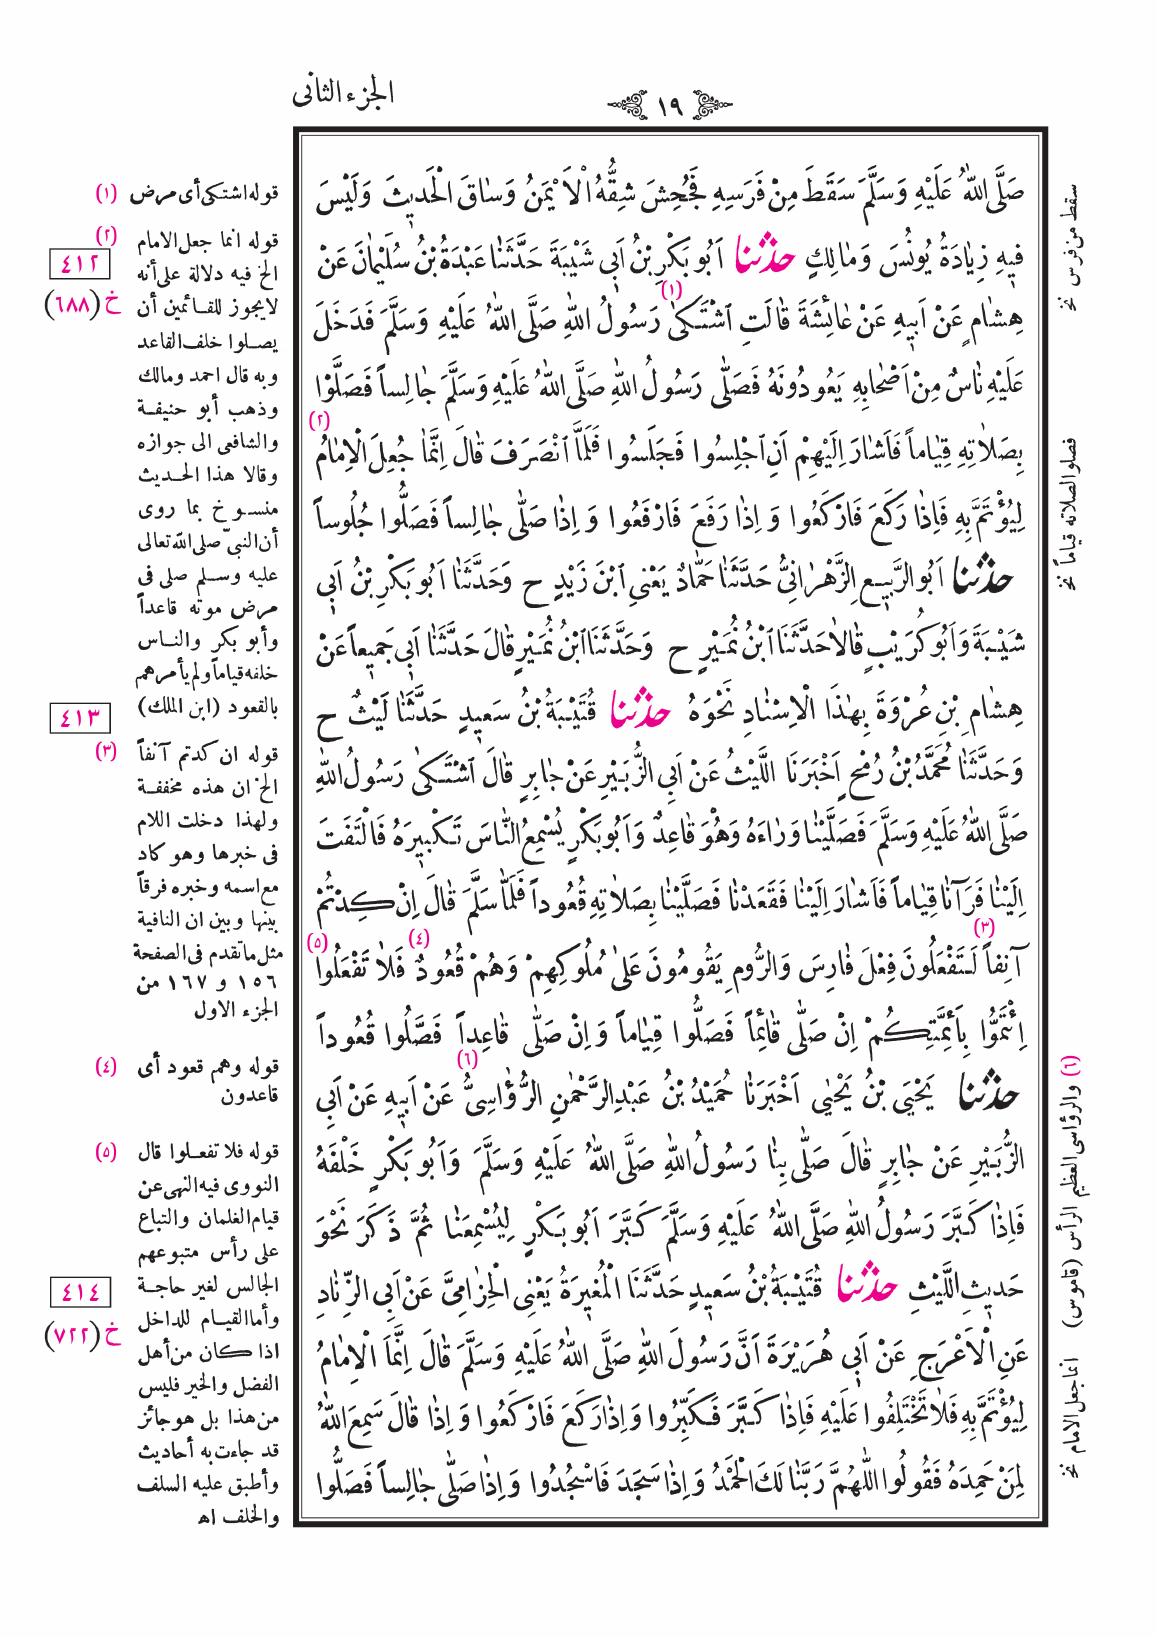 الجزء الثانى
١٩
صَلَّى اللّٰهُ عَلَيْهِ وَسَلَّمَ سَقَطَ مِنْ فَرَسِهِ فَجُحِشَ شِقُّهُ الْاَيْمَنُ وَسَاقَ الْحَدِيثَ وَلَيْسَ
فِيهِ زِيَادَةُ يُونُسَ وَمَالِكٍ حَدَّثَنَا اَبُو بَكْرِ بْنُ اَبِي شَيْبَةَ حَدَّثَنَا عَبْدَةُ بْنُ سُلَيْمَانَ عَنْ
هِشَامٍ عَنْ اَبِيهِ عَنْ عَائِشَةَ قَالَتِ اشْتَكَى (١) رَسُولُ اللّٰهِ صَلَّى اللّٰهُ عَلَيْهِ وَسَلَّمَ فَدَخَلَ
عَلَيْهِ نَاسٌ مِنْ اَصْحَابِهِ يَعُودُونَهُ فَصَلَّى رَسُولُ اللّٰهِ صَلَّى اللّٰهُ عَلَيْهِ وَسَلَّمَ جَالِساً فَصَلَّوْا
بِصَلَاتِهِ قِيَاماً فَاَشَارَ اِلَيْهِمْ اَنِ اجْلِسُوا فَجَلَسُوا فَلَمَّا انْصَرَفَ قَالَ اِنَّمَا جُعِلَ الْاِمَامُ (٢)
لِيُؤْتَمَّ بِهِ فَاِذَا رَكَعَ فَارْكَعُوا وَ اِذَا رَفَعَ فَارْفَعُوا وَ اِذَا صَلَّى جَالِساً فَصَلُّوا جُلُوساً
حَدَّثَنَا اَبُو الرَّبِيعِ الزَّهْرَانِىُّ حَدَّثَنَا حَمَّادٌ يَعْنِى ابْنَ زَيْدٍ ح وَحَدَّثَنَا اَبُو بَكْرِ بْنُ اَبِي
شَيْبَةَ وَاَبُو كُرَيْبٍ قَالَا حَدَّثَنَا ابْنُ نُمَيْرٍ ح وَحَدَّثَنَا ابْنُ نُمَيْرٍ قَالَ حَدَّثَنَا اَبِي جَمِيعاً عَنْ
هِشَامِ بْنِ عُرْوَةَ بِهٰذَا الْاِسْنَادِ نَحْوَهُ حَدَّثَنَا قُتَيْبَةُ بْنُ سَعِيدٍ حَدَّثَنَا لَيْثٌ ح
وَحَدَّثَنَا مُحَمَّدُ بْنُ رُمْحٍ اَخْبَرَنَا اللَّيْثُ عَنْ اَبِي الزُّبَيْرِ عَنْ جَابِرٍ قَالَ اشْتَكَى رَسُولُ اللّٰهِ
صَلَّى اللّٰهُ عَلَيْهِ وَسَلَّمَ فَصَلَّيْنَا وَرَاءَهُ وَهُوَ قَاعِدٌ وَاَبُو بَكْرٍ يُسْمِعُ النَّاسَ تَكْبِيرَهُ فَالْتَفَتَ
اِلَيْنَا فَرَآنَا قِيَاماً فَاَشَارَ اِلَيْنَا فَقَعَدْنَا فَصَلَّيْنَا بِصَلَاتِهِ قُعُوداً فَلَمَّا سَلَّمَ قَالَ اِنْ كِدْتُمْ
آنِفاً (٣) لَتَفْعَلُونَ فِعْلَ فَارِسَ وَالرُّومِ يَقُومُونَ عَلَى مُلُوكِهِمْ وَهُمْ قُعُودٌ (٤) فَلَا تَفْعَلُوا (٥)
اِئْتَمُّوا بِاَئِمَّتِكُمْ اِنْ صَلَّى قَائِماً فَصَلُّوا قِيَاماً وَ اِنْ صَلَّى قَاعِداً فَصَلُّوا قُعُوداً
حَدَّثَنَا يَحْيَى بْنُ يَحْيَى اَخْبَرَنَا حُمَيْدُ بْنُ عَبْدِ الرَّحْمٰنِ الرُّؤَاسِىُّ (٦) عَنْ اَبِيهِ عَنْ اَبِي
الزُّبَيْرِ عَنْ جَابِرٍ قَالَ صَلَّى بِنَا رَسُولُ اللّٰهِ صَلَّى اللّٰهُ عَلَيْهِ وَسَلَّمَ وَاَبُو بَكْرٍ خَلْفَهُ
فَاِذَا كَبَّرَ رَسُولُ اللّٰهِ صَلَّى اللّٰهُ عَلَيْهِ وَسَلَّمَ كَبَّرَ اَبُو بَكْرٍ لِيُسْمِعَنَا ثُمَّ ذَكَرَ نَحْوَ
حَدِيثِ اللَّيْثِ حَدَّثَنَا قُتَيْبَةُ بْنُ سَعِيدٍ حَدَّثَنَا الْمُغِيرَةُ يَعْنِى الْحِزَامِىَّ عَنْ اَبِي الزِّنَادِ
عَنِ الْاَعْرَجِ عَنْ اَبِي هُرَيْرَةَ اَنَّ رَسُولَ اللّٰهِ صَلَّى اللّٰهُ عَلَيْهِ وَسَلَّمَ قَالَ اِنَّمَا الْاِمَامُ
لِيُؤْتَمَّ بِهِ فَلَا تَخْتَلِفُوا عَلَيْهِ فَاِذَا كَبَّرَ فَكَبِّرُوا وَ اِذَا رَكَعَ فَارْكَعُوا وَ اِذَا قَالَ سَمِعَ اللّٰهُ
لِمَنْ حَمِدَهُ فَقُولُوا اللّٰهُمَّ رَبَّنَا لَكَ الْحَمْدُ وَ اِذَا سَجَدَ فَاسْجُدُوا وَ اِذَا صَلَّى جَالِساً فَصَلُّوا
(١) قوله اشتكى أى مرض
(٢) قوله انما جعل الامام
٤١٢
الخ فيه دلالة على أنه
خ (٦٨٨)
لايجوز للقائمين أن
يصلوا خلف القاعد
وبه قال احمد ومالك
وذهب أبو حنيفة
والشافعى الى جوازه
وقالا هذا الحديث
منسوخ بما روى
أن النبىّ صلى الله تعالى
عليه وسلم صلى فى
مرض موته قاعداً
وأبو بكر والناس
خلفه قياماً ولم يأمرهم
بالقعود (ابن الملك)
٤١٣
(٣) قوله ان كدتم آنفاً
الخ ان هذه مخففة
ولهذا دخلت اللام
فى خبرها وهو كاد
مع اسمه وخبره فرقاً
بينها وبين ان النافية
مثل ما تقدم فى الصفحة
١٥٦ و ١٦٧ من
الجزء الاول
(٤) قوله وهم قعود أى
قاعدون
(٥) قوله فلا تفعلوا قال
النووى فيه النهى عن
قيام الغلمان والتباع
على رأس متبوعهم
الجالس لغير حاجة
٤١٤
وأما القيام للداخل
خ (٧٢٢)
اذا كان من أهل
الفضل والخير فليس
من هذا بل هو جائز
قد جاءت به أحاديث
وأطبق عليه السلف
والخلف اه
سقط من فرس نخ
فصلوا لصلاته قياماً نخ
(٦) والرؤاسى العظيم الرأس (قاموس)
انما جعل الامام نخ